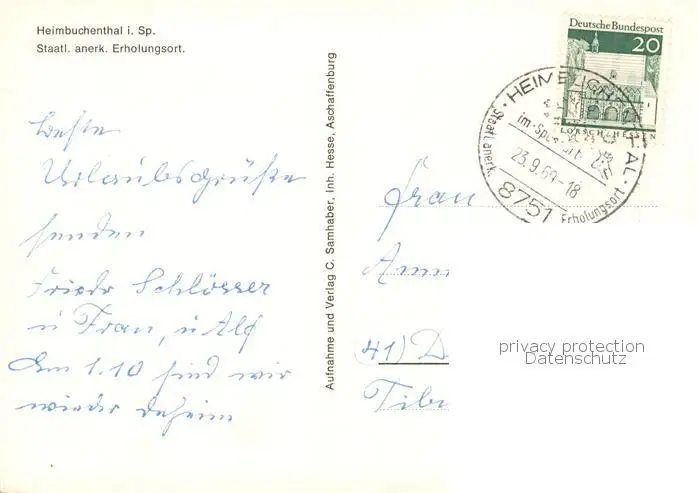 Heimbuchenthal i. Sp.
Staatl. anerk. Erholungsort.
Beste
Urlaubsgrüße
senden
Friedr Schlösser
u Frau, u Alf
Am 1.10 sind wir
wieder daheim
Aufnahme und Verlag C. Samhaber, Inh. Hesse, Aschaffenburg
Deutsche Bundespost
20
LORSCH/HESSEN
im Spessart
23.9.69-18
8751
Staatl. anerk.
Erholungsort
Frau
41) D
privacy protection
Datenschutz